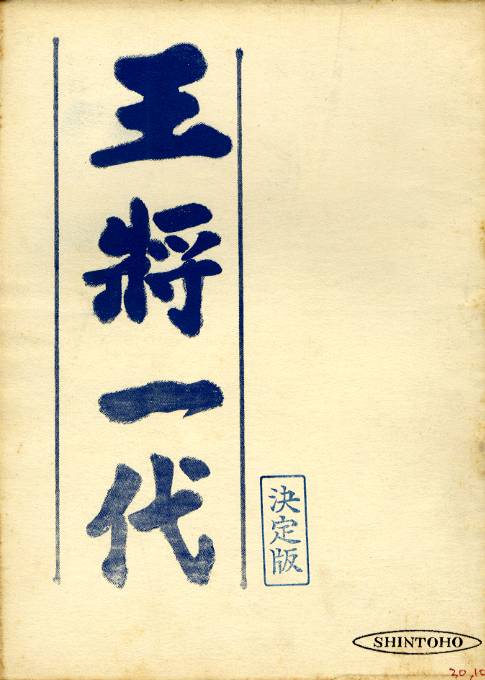 王將一代
決定版
SHINTOHO
20,10